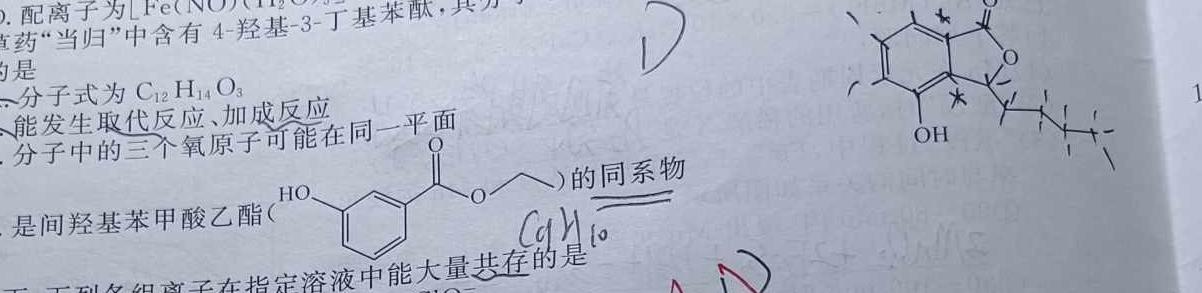 配离子为[Fe(NO)(H₂O)
草药“当归”中含有 4-羟基-3-丁基苯酞,其分子
的是
分子式为 C₁₂H₁₄O₃
能发生取代反应、加成反应
分子中的三个氧原子可能在同一平面
是间羟基苯甲酸乙酯(HO O O)的同系物
C₉H₁₀
下列各组离子在指定溶液中能大量共存的是
D
O
O
OH
1